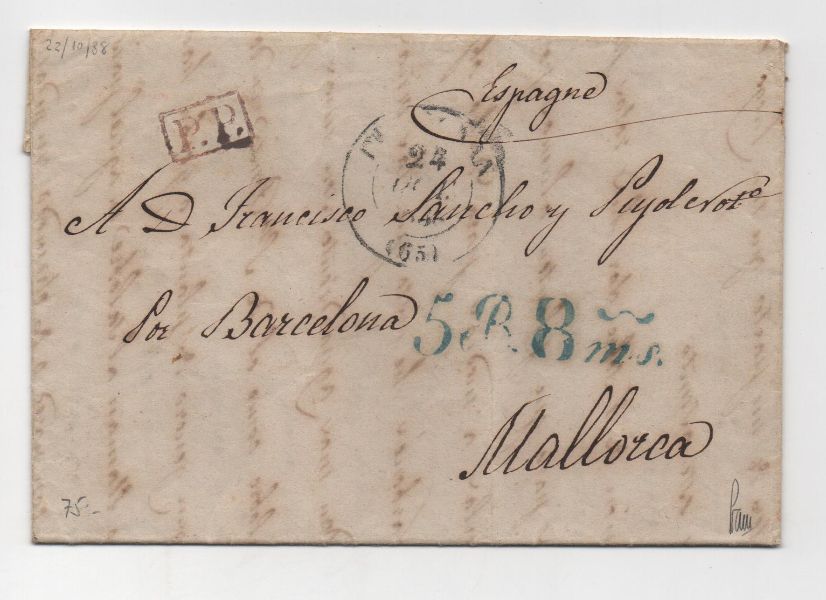 22/10/38
P.P.
Espagne
24
(65)
A D Francisco Sancho y
Por Barcelona
5R. 8 ms.
Mallorca
75-